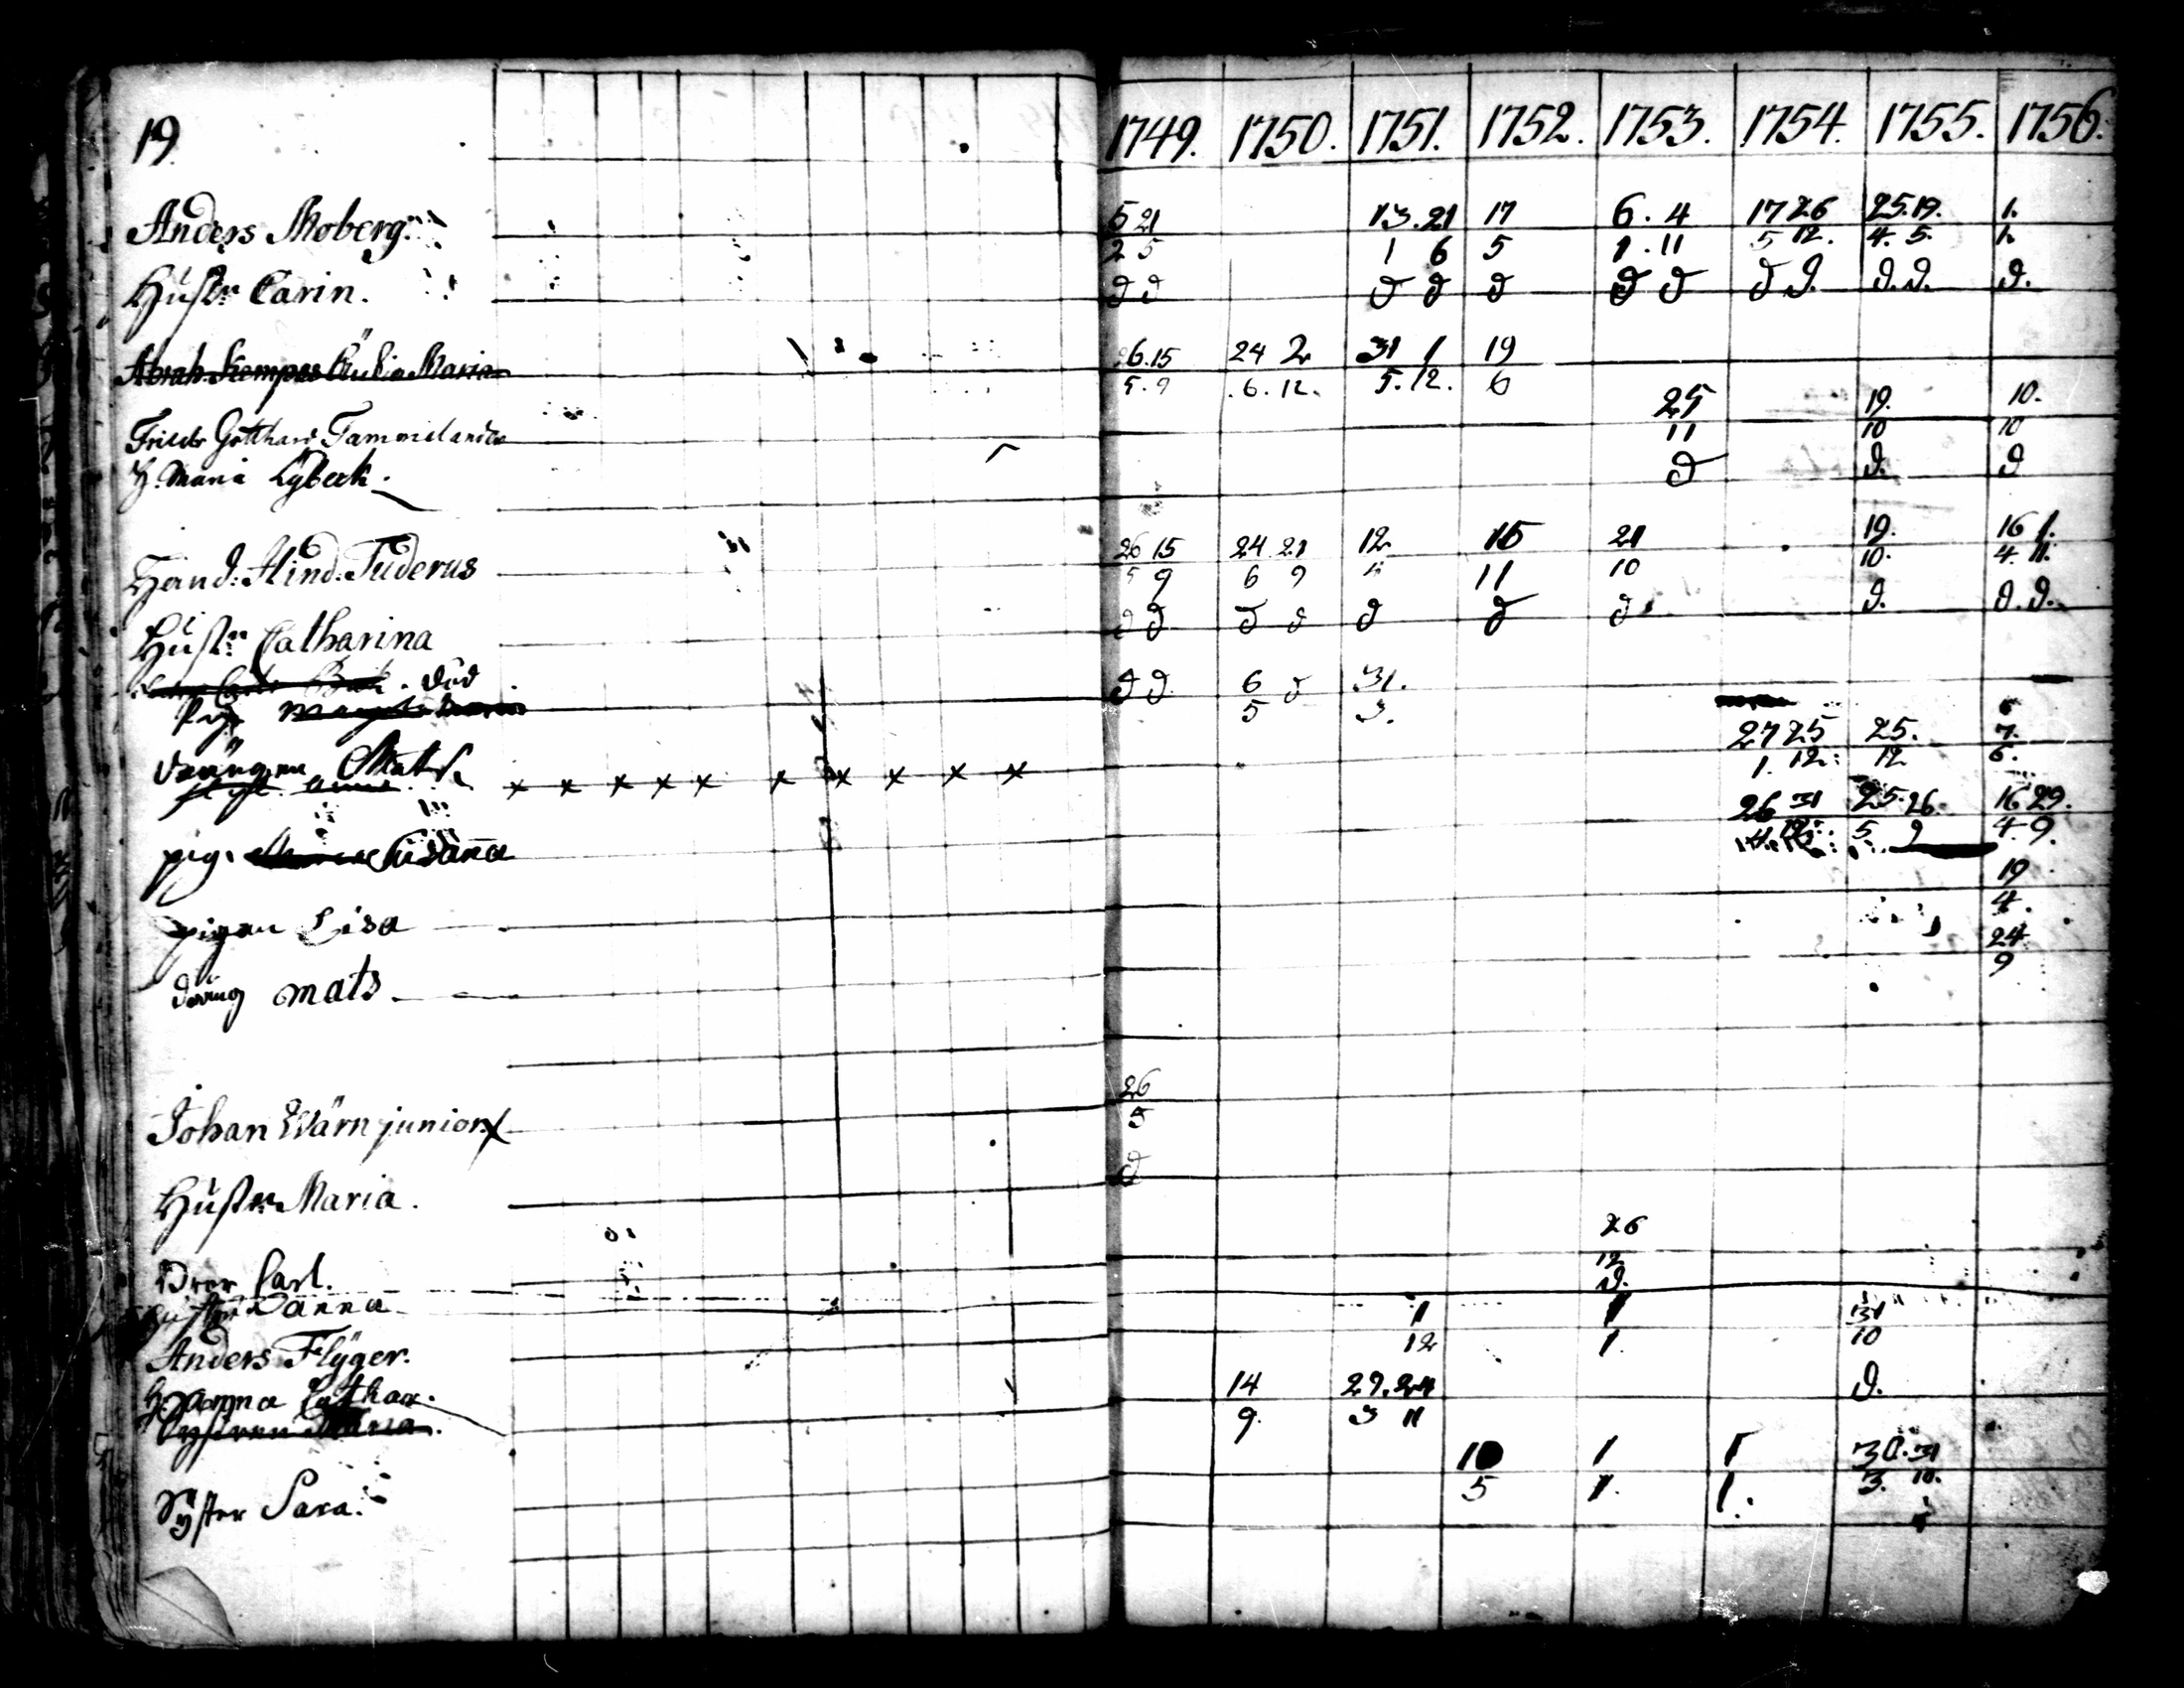 19.
1749. 1750. 1751. 1752. 1753. 1754. 1755. 1756.
Anders Moberg. 5 21 13. 21 17 6. 4 17 26 25. 19. 1.
2 5 1 6 5 1. 11 5 12. 4. 5. 1.
Hustr Carin. d d d d d d d d d. d. d. d.
Abrah. Kempes Enkia Maria 26. 15 24 2 31 1 19
5. 9 6. 12. 5. 12. 6
Friedr Gotthard Tammelander 25 19. 10.
11 10 10
H. Maria Lybeck. d d. d
Hand: Hind. Tuderus 26 15 24 21 12 15 21 19. 16 1.
5 9 6 9 11 10 10. 4. 11.
Hustr Catharina d d d d d d d d. d. d.
död d d 6 d 31.
pig. 5 3.
drängen Mats. 27 25 25. 7.
1. 12. 12 6.
x x x x x x x x x x
pig. Susanna 26 31 25. 26. 16 29.
5 9 4 9.
pigan Lisa 19
4.
dräng mats 24
9
Johan Wärn junior x 26
5
Hustr Maria. d
Bror Carl. 26
12
Hustr Danna d.
Anders Flyger. 1 1 31
12 1. 10
H. Anna Cathar. d.
Systren Maria. 14 29. 24
9. 3 11
Syster Sara. 10 1 1 30. 31
5 1. 1. 3. 10.